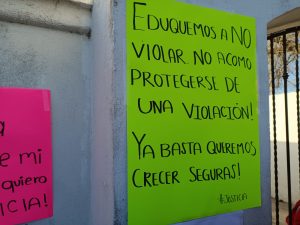 EDUQUEMOS A NO
VIOLAR. NO A COMO
PROTEGERSE DE
UNA VIOLACIÓN!
YA BASTA QUEREMOS
CRECER SEGURAS!
#JUSTICIA
a
e mi
quiero
ICIA!